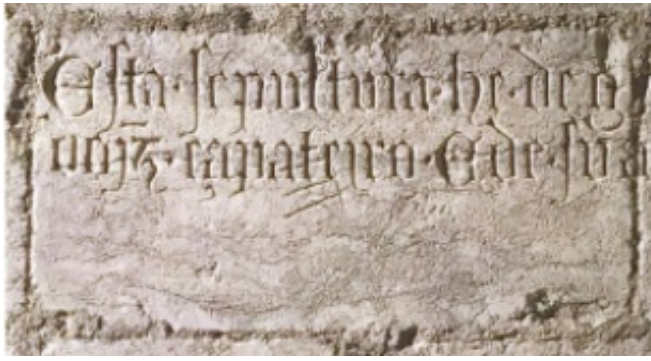 Esta · sepultura · he · de g
çapateiro · E de · sua